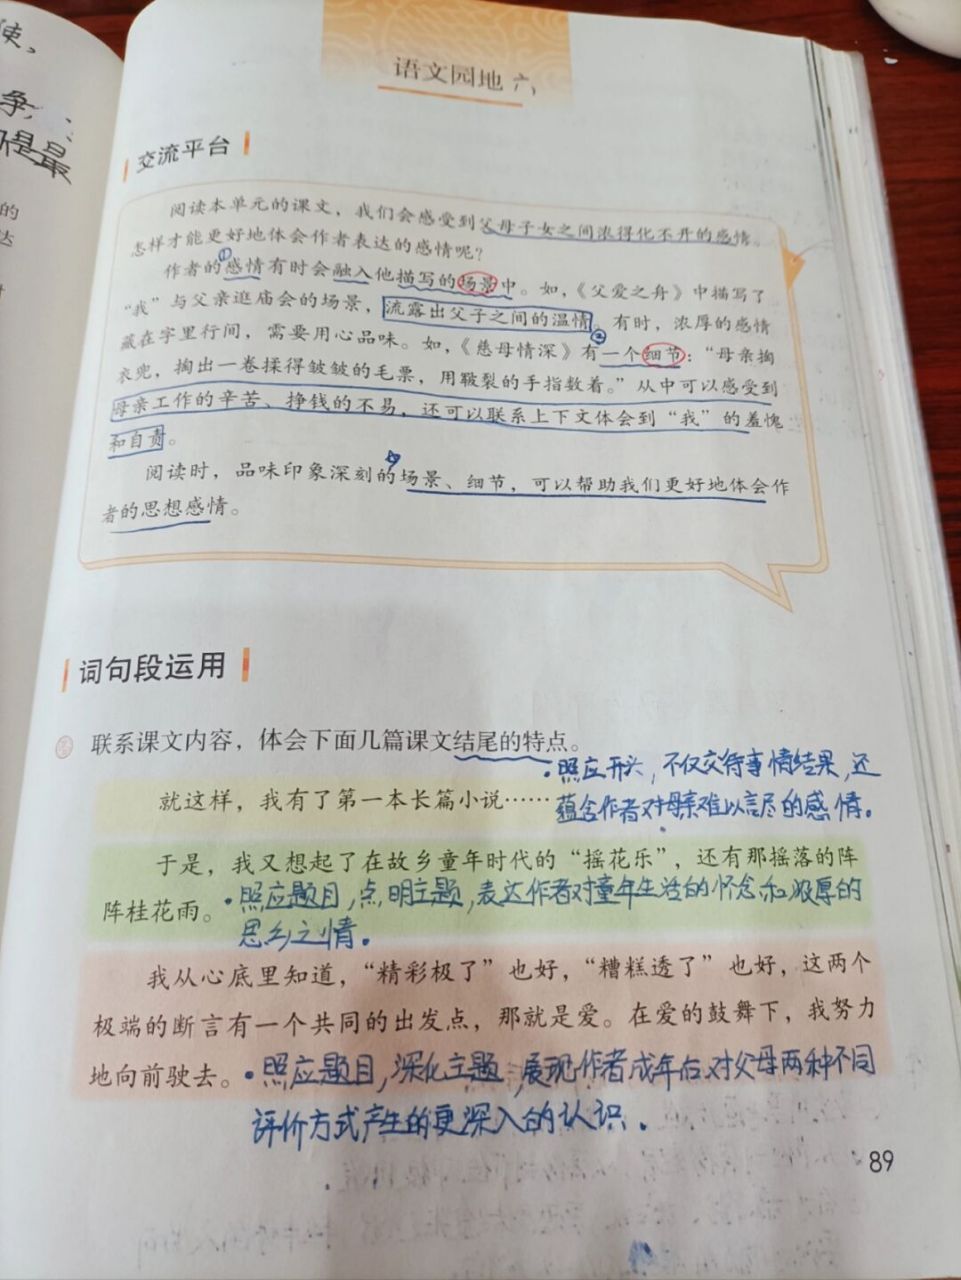 使，
争，
不是最
的
达
语文园地 六
交流平台
阅读本单元的课文，我们会感受到父母子女之间浓得化不开的感情。
怎样才能更好地体会作者表达的感情呢？
①
作者的感情有时会融入他描写的场景中。如，《父爱之舟》中描写了
“我”与父亲逛庙会的场景，流露出父子之间的温情。有时，浓厚的感情
②
藏在字里行间，需要用心品味。如，《慈母情深》有一个细节：“母亲掏
衣兜，掏出一卷揉得皱皱的毛票，用皲裂的手指数着。”从中可以感受到
母亲工作的辛苦、挣钱的不易，还可以联系上下文体会到“我”的羞愧
和自责。
阅读时，品味印象深刻的场景、细节，可以帮助我们更好地体会作
者的思想感情。
词句段运用
联系课文内容，体会下面几篇课文结尾的特点。
·照应开头，不仅交待事情结果，还
就这样，我有了第一本长篇小说……
蕴含作者对母亲难以言尽的感情。
于是，我又想起了在故乡童年时代的“摇花乐”，还有那摇落的阵
阵桂花雨。·照应题目，点明主题，表达作者对童年生活的怀念和浓厚的
思乡之情。
我从心底里知道，“精彩极了”也好，“糟糕透了”也好，这两个
极端的断言有一个共同的出发点，那就是爱。在爱的鼓舞下，我努力
地向前驶去。·照应题目，深化主题，展现作者成年后对父母两种不同
评价方式产生的更深入的认识.
89